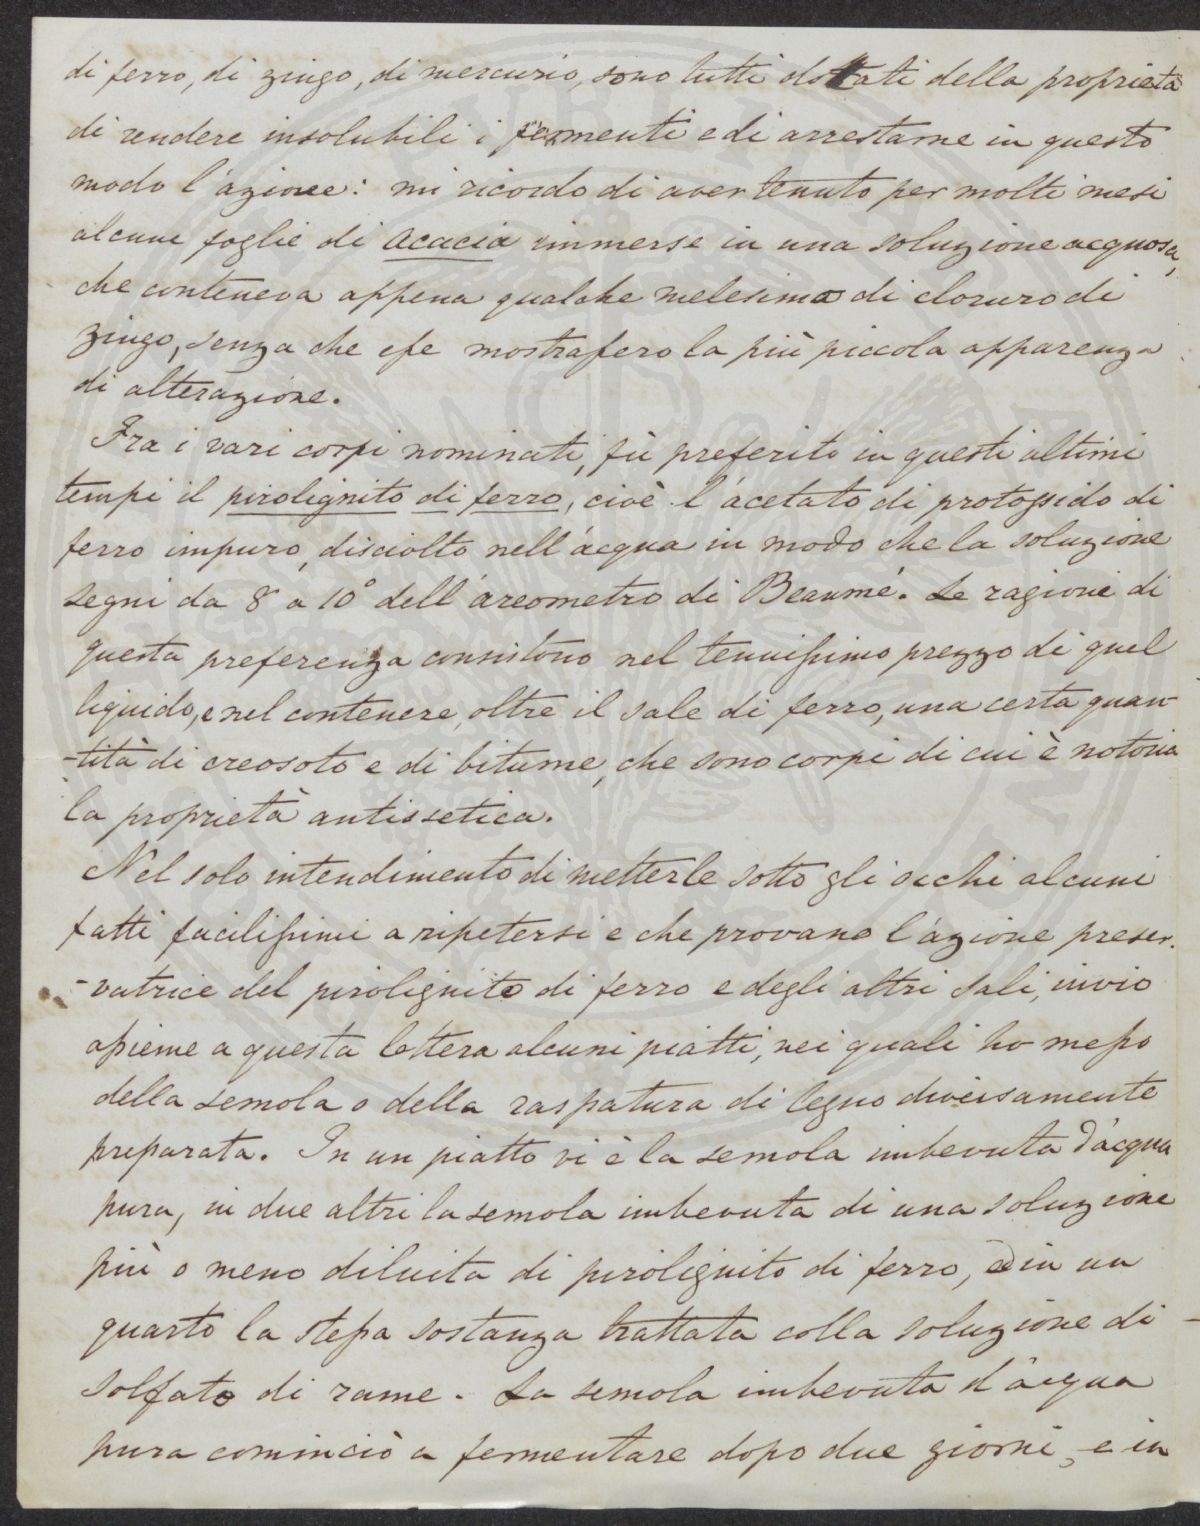 di ferro, di zingo, di mercurio, sono tutti dottati della proprietà
di rendere insolubili i fermenti e di arrestarne in questo
modo l'azione: mi ricordo di aver tenuto per molti mesi
alcune foglie di Acacia immerse in una soluzione acquosa,
che conteneva appena qualche melesimo di cloruro di
zingo, senza che esse mostrassero la più piccola apparenza
di alterazione.
Fra i vari corpi nominati, fù preferito in questi ultimi
tempi il pirolignito di ferro, cioè l'acetato di protossido di
ferro impuro, disciolto nell'acqua in modo che la soluzione
segni da 8 a 10° dell'areometro di Beaumé. Le ragioni di
questa preferenza consistono nel tenuissimo prezzo di quel
liquido, e nel contenere, oltre il sale di ferro, una certa quan-
-tità di creosoto e di bitume, che sono corpi di cui è notoria
la proprietà antissetica.
Nel solo intendimento di metterle sotto gli occhi alcuni
fatti facilissimi a ripetersi e che provano l'azione preser-
-vatrice del pirolignito di ferro e degli altri sali, invio
assieme a questa lettera alcuni piatti, nei quali ho messo
della semola o della raspatura di legno diversamente
preparata. In un piatto vi è la semola imbevuta d'acqua
pura, in due altri la semola imbevuta di una soluzione
più o meno diluita di pirolignito di ferro, ed in un
quarto la stessa sostanza trattata colla soluzione di
solfato di rame. La semola imbevuta d'acqua
pura cominciò a fermentare dopo due giorni, e in